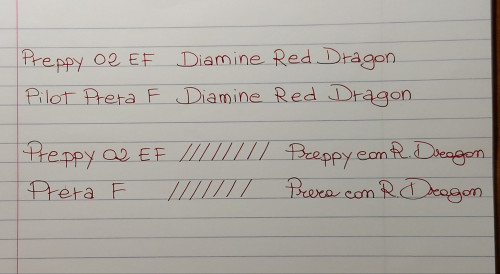 Preppy 02 EF Diamine Red Dragon
Pilot Prera F Diamine Red Dragon
Preppy 02 EF //////// Preppy con R. Dragon
Prera F /////// Prera con R Dragon